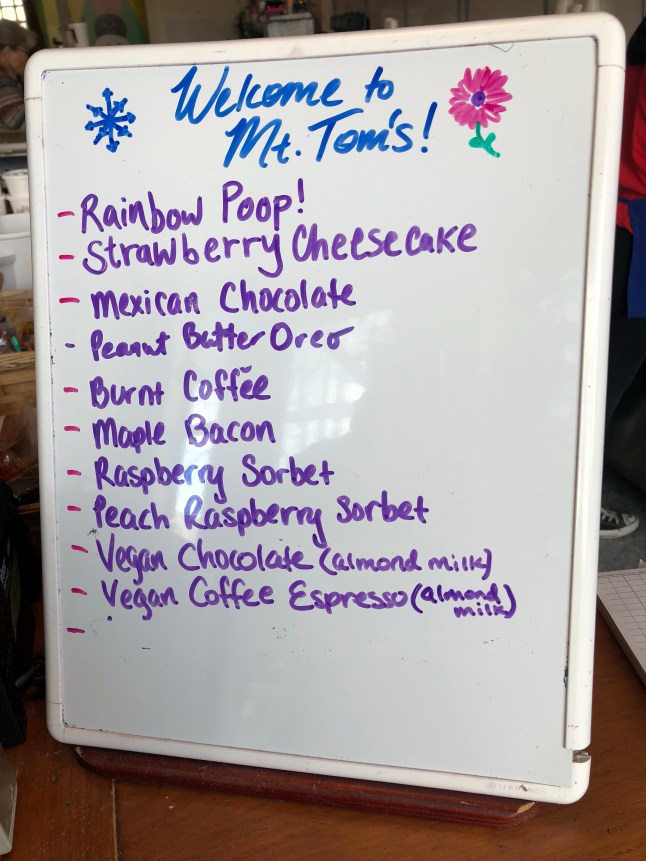 Welcome to
Mt. Tom's!
- Rainbow Poop!
- Strawberry Cheesecake
- Mexican Chocolate
- Peanut Butter Oreo
- Burnt Coffee
- Maple Bacon
- Raspberry Sorbet
- Peach Raspberry Sorbet
- Vegan Chocolate (almond milk)
- Vegan Coffee Espresso (almond
milk)
-